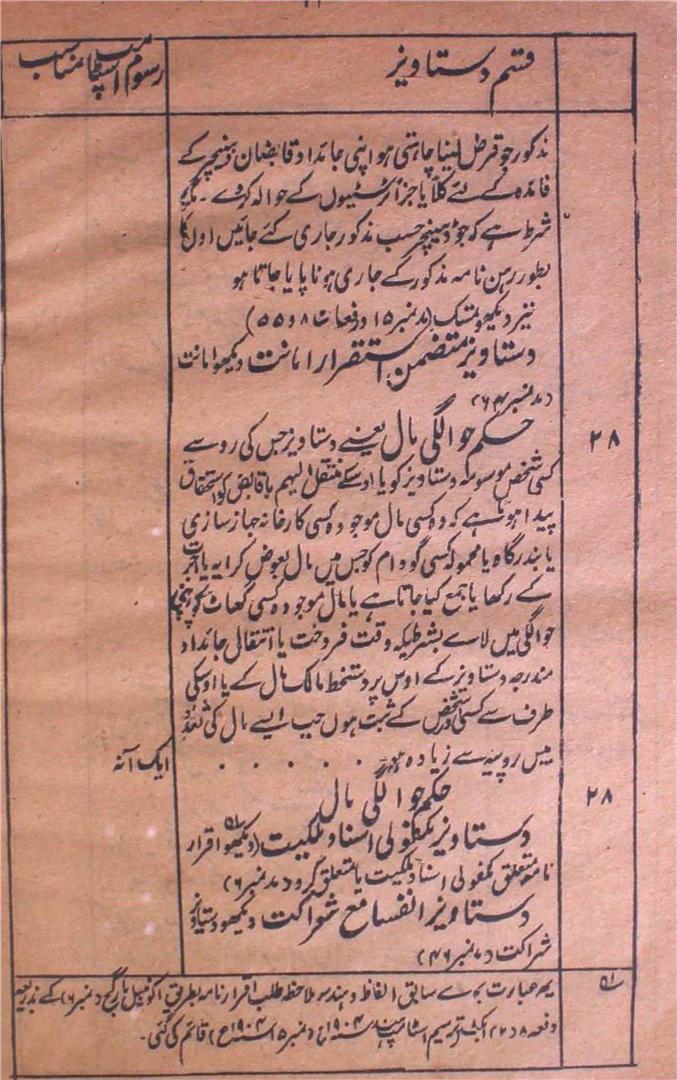 قسم دستاویز
رسوم اسٹامپ مناسب
مذکور جو قرض لینا چاہتی ہو اپنی جائداد قابضان ڈبینچر کے
فائدہ کے لئے کلاً یا جزاً ٹرسٹیوں کے حوالہ کردے۔ مگر
شرط ہے کہ جو ڈبینچر حسب مذکور جاری کئے جائیں اون کا
بطور رہن نامہ مذکور کے جاری ہونا پایا جاتا ہو
نیز دیکھو تمسک (مد نمبر ۱۵ و دفعات ۸ و ۵۵)
دستاویز متضمن استقرار امانت دیکھو امانت
(مد نمبر ۶۴)
۲۸
حکم حوالگی مال یعنے دستاویز جس کی روسے
کسی شخص موسومہ دستاویز کو یا اوسکے منتقل الیہم یا قابض کو استحقاق
پیدا ہوتا ہے کہ وہ کسی مال موجودہ کسی کارخانہ جہاز سازی
یا بندرگاہ یا محمولہ کسی گودام کو جس میں مال بعوض کرایہ یا اجرت
کے رکھا یا جمع کیا جاتا ہے یا مال موجودہ کسی گھاٹ کو
حوالگی میں لاے بشرطیکہ وقت فروخت یا انتقال جائداد
مندرجہ دستاویز کے اوس پر دستخط مالک مال کے یا اوسکی
طرف سے کسی اور شخص کے ثبت ہوں جب ایسے مال کی تعداد
بیس روپیہ سے زیادہ ہو . . . . . . ایک آنہ
۲۸
حکم حوالگی مال
دستاویز مکفولی اسناد ملکیت (دیکھو اقرار
نامہ متعلق مکفولی اسناد ملکیت یا متعلق گرو (مد نمبر ۶)
دستاویز انفساخ شراکت دیکھو دستاویز
شراکت (مد نمبر ۴۶)
یہ عبارت بجاے سابق الفاظ و ہندسہ ملاحظہ طلب اقرار نامہ بطریق اکویٹیبل مارگیج (نمبر ۶) کے بذریعہ
دفعہ ۸ (۲) ایکٹ ترمیم اسٹامپ ہند ۱۹۰۴ع (نمبر ۱۵ ۱۹۰۴ع) قائم کی گئی۔